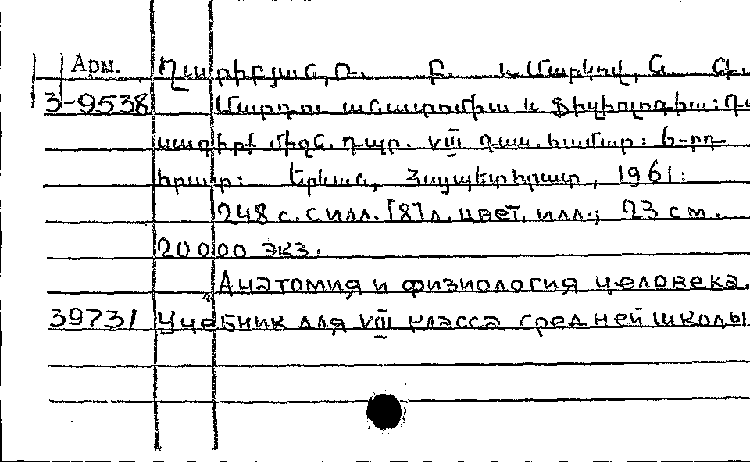 Арм. Ղարիբյան, Ռ. Բ. և Մարկով, Ա. Գ.
3-9538 Մարդու անատոմիա և ֆիզիոլոգիա: Դա
սագիրք միջն. դպր. VIII դաս. համար: 6-րդ
հրատ: Երևան, Հայպետհրատ, 1961:
248 с. с илл. [8] л. цвет. илл.; 23 см.
20 000 экз.
Анатомия и физиология человека.
39731 Учебник для VIII класса средней школы